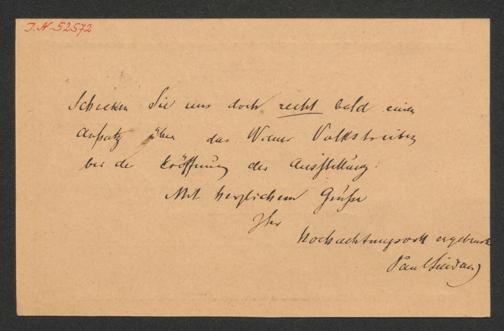 J.N. 52572
Schicken Sie uns doch recht bald einen
Aufsatz über das Wiener Volkstreiben
bei der Eröffnung der Ausstellung.
Mit herzlichem Gruße
Ihr
Hochachtungsvoll ergebener
Paul